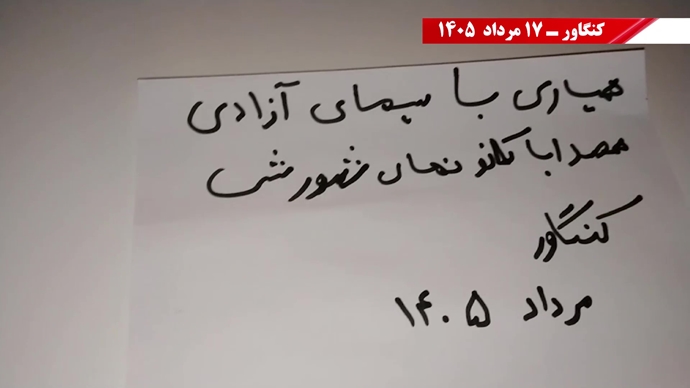 کنگاور ـ ۱۷ مرداد ۱۴۰۵
همیاری با سیمای آزادی
همصدا با کانونهای شورشی
کنگاور
مرداد ۱۴۰۵